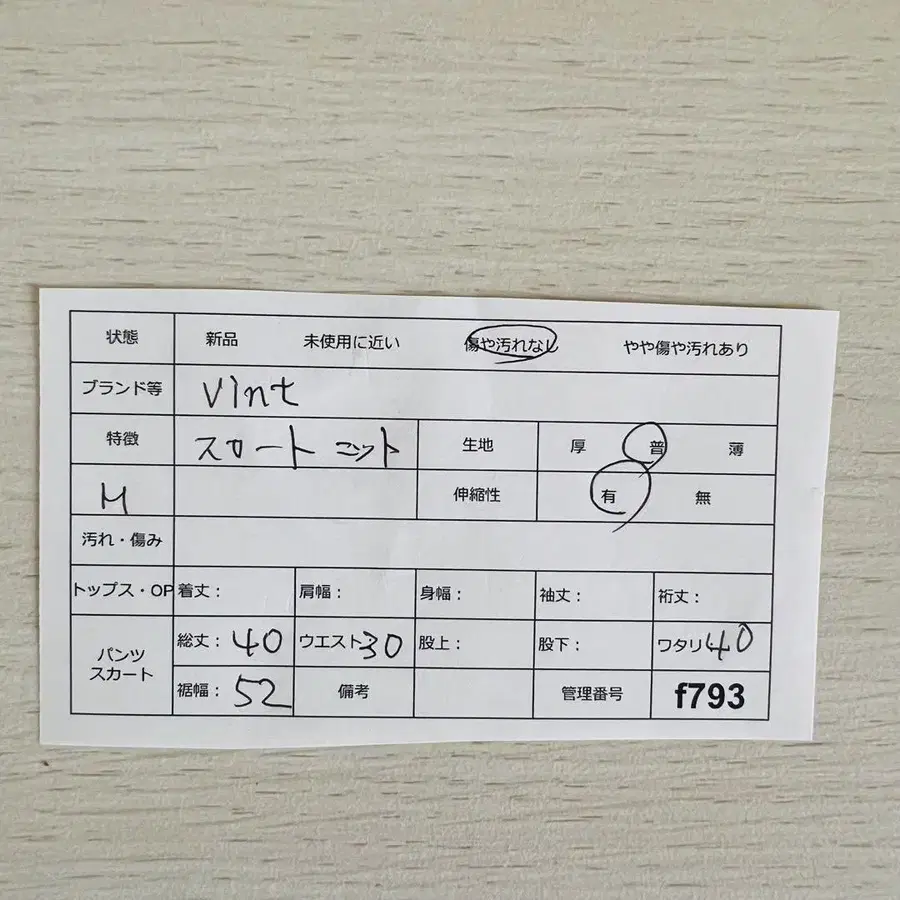 状態 新品 未使用に近い 傷や汚れなし やや傷や汚れあり
ブランド等 Vint
特徴 スカート ニット 生地 厚 普 薄
M 伸縮性 有 無
汚れ・傷み
トップス・OP 着丈: 肩幅: 身幅: 袖丈: 裄丈:
パンツ スカート 総丈: 40 ウエスト 30 股上: 股下: ワタリ: 40
裾幅: 52 備考 管理番号 f793